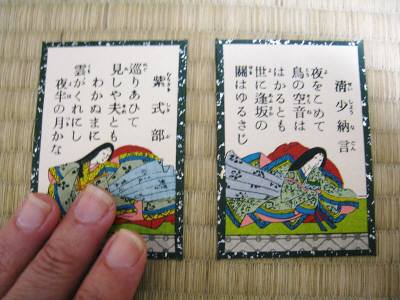 紫式部
巡りあひて
見しや夫とも
わかぬまに
雲がくれにし
夜半の月かな
清少納言
夜をこめて
鳥の空音は
はかるとも
世に逢坂の
關はゆるさじ